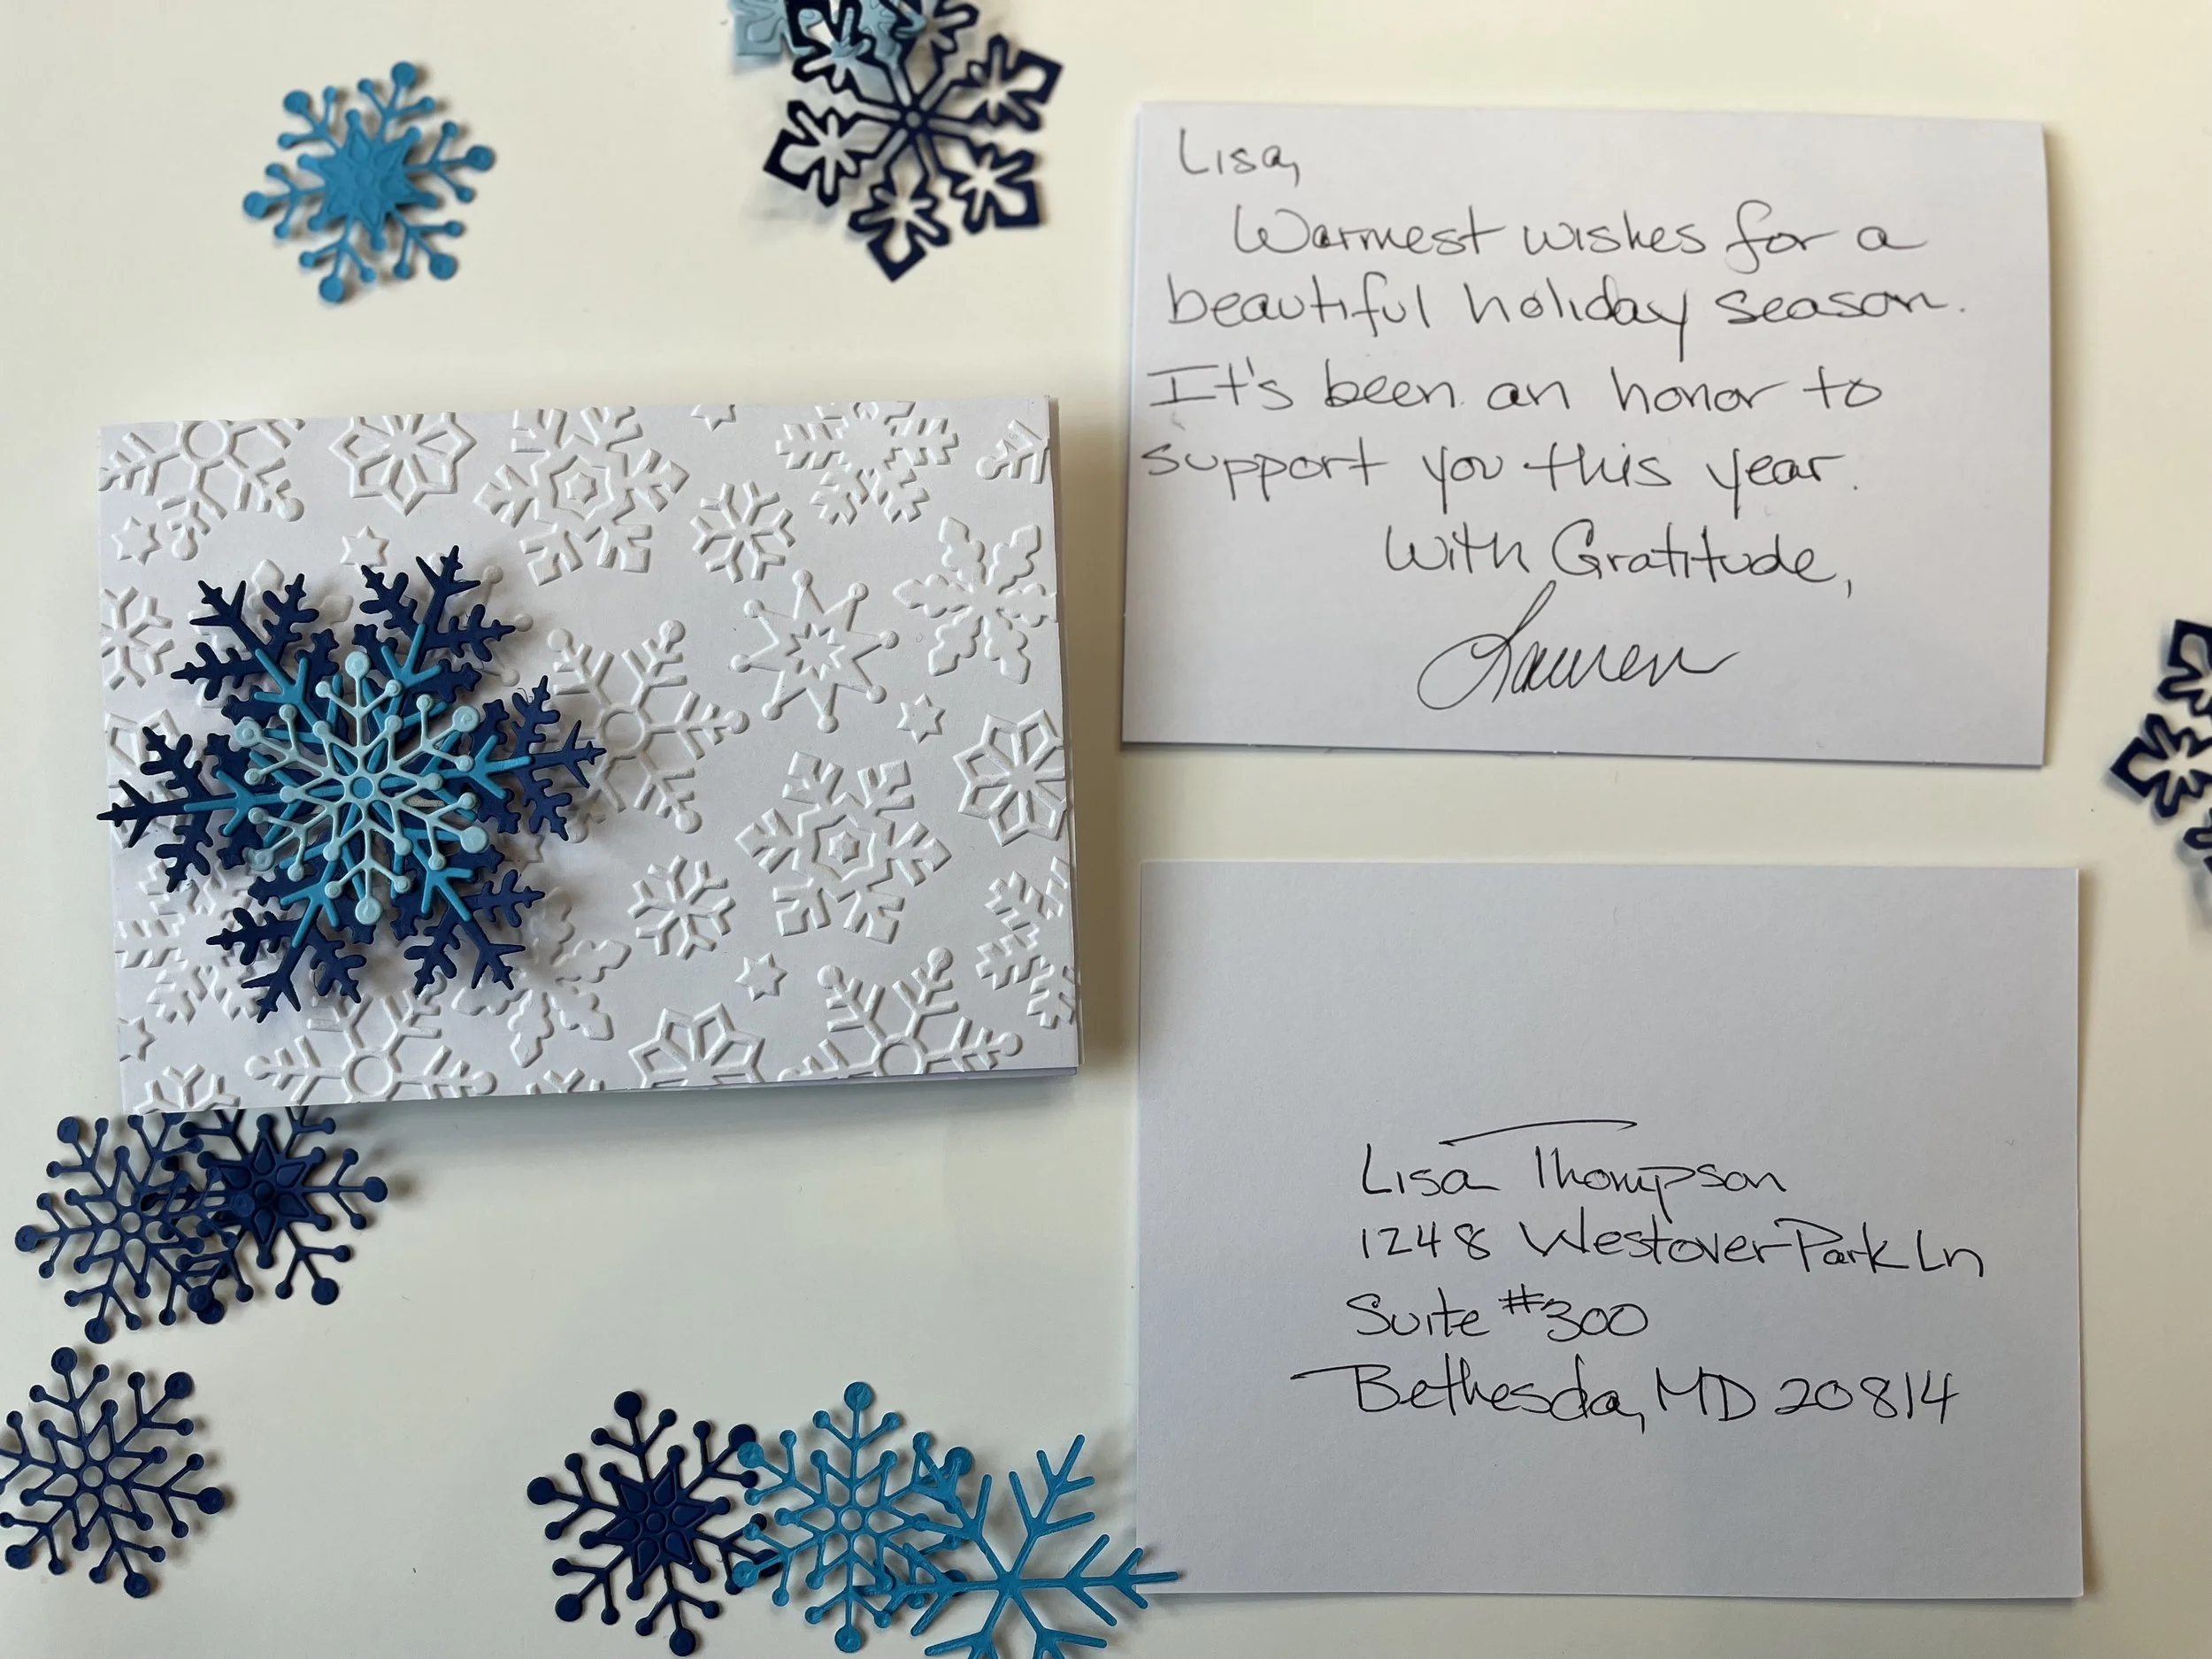 Lisa,
Warmest wishes for a
beautiful holiday season.
It's been an honor to
support you this year.
With Gratitude,
Lauren
Lisa Thompson
1248 Westover Park Ln
Suite #300
Bethesda, MD 20814